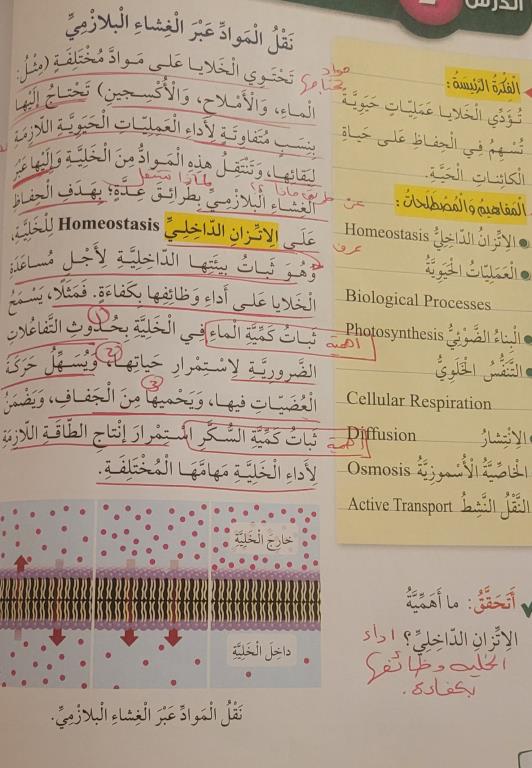 الدرس
نَقْلُ الْمَوادِّ عَبْرَ الْغِشاءِ الْبلازْمِيِّ
تَحْتَوي الْخَلايا عَلى مَوادَّ مُخْتَلِفَةٍ (مِثْلُ:
مواد
الْماءِ، وَالْأَمْلاحِ، وَالْأُكْسِجينِ) تَحْتاجُ إِلَيْها
بِنِسَبٍ مُتَفاوِتَةٍ لِأَداءِ الْعَمَلِيّاتِ الْحَيَوِيَّةِ اللّازِمَةِ
لِبَقائِها، وَتَنْتَقِلُ هذِهِ الْمَوادُّ مِنَ الْخَلِيَّةِ وَإِلَيْها عَبْرَ
لماذا تنتقل
الْغِشاءِ الْبلازْمِيِّ بِطَرائِقَ عِدَّةٍ؛ بِهَدَفِ الْحِفاظِ
عَلى الِاتِّزانِ الدّاخِلِيِّ Homeostasis لِلْخَلِيَّةِ،
وَهُوَ ثَباتُ بيئَتِها الدّاخِلِيَّةِ لِأَجْلِ مُساعَدَةِ
الْخَلايا عَلى أَداءِ وَظائِفِها بِكَفاءَةٍ. فَمَثَلًا، يَسْمَحُ
ثَباتُ كَمِّيَّةِ الْماءِ في الْخَلِيَّةِ بِحُدوثِ التَّفاعُلاتِ
أهمية
1
الضَّرورِيَّةِ لِاسْتِمْرارِ حَياتِها، وَيُسَهِّلُ حَرَكَةَ
2
الْعُضَيّاتِ فيها، وَيَحْميها مِنَ الْجَفافِ، وَيَضْمَنُ
3
ثَباتُ كَمِّيَّةِ السُّكَّرِ اسْتِمْرارَ إِنْتاجِ الطّاقَةِ اللّازِمَةِ
أهمية
لِأَداءِ الْخَلِيَّةِ مَهامَّها الْمُخْتَلِفَةَ.
خارِجَ الْخَلِيَّةِ
داخِلَ الْخَلِيَّةِ
نَقْلُ الْمَوادِّ عَبْرَ الْغِشاءِ الْبلازْمِيِّ.
الْفِكْرَةُ الرَّئيسَةُ:
تُؤَدّي الْخَلايا عَمَلِيّاتٍ حَيَوِيَّةً
تُسْهِمُ في الْحِفاظِ عَلى حَياةِ
الْكائِناتِ الْحَيَّةِ.
الْمَفاهيمُ وَالْمُصْطَلَحاتُ:
الِاتِّزانُ الدّاخِلِيُّ Homeostasis
عرف
الْعَمَلِيّاتُ الْحَيَوِيَّةُ
Biological Processes
الْبِناءُ الضَّوْئِيُّ Photosynthesis
التَّنَفُّسُ الْخَلَوِيُّ
Cellular Respiration
الِانْتِشارُ Diffusion
الْخاصِّيَّةُ الْأُسْموزِيَّةُ Osmosis
النَّقْلُ النَّشِطُ Active Transport
أَتَحَقَّقُ: ما أَهَمِّيَّةُ
الِاتِّزانِ الدّاخِلِيِّ؟ اداء
الخليه وظائفها
بكفاءة.